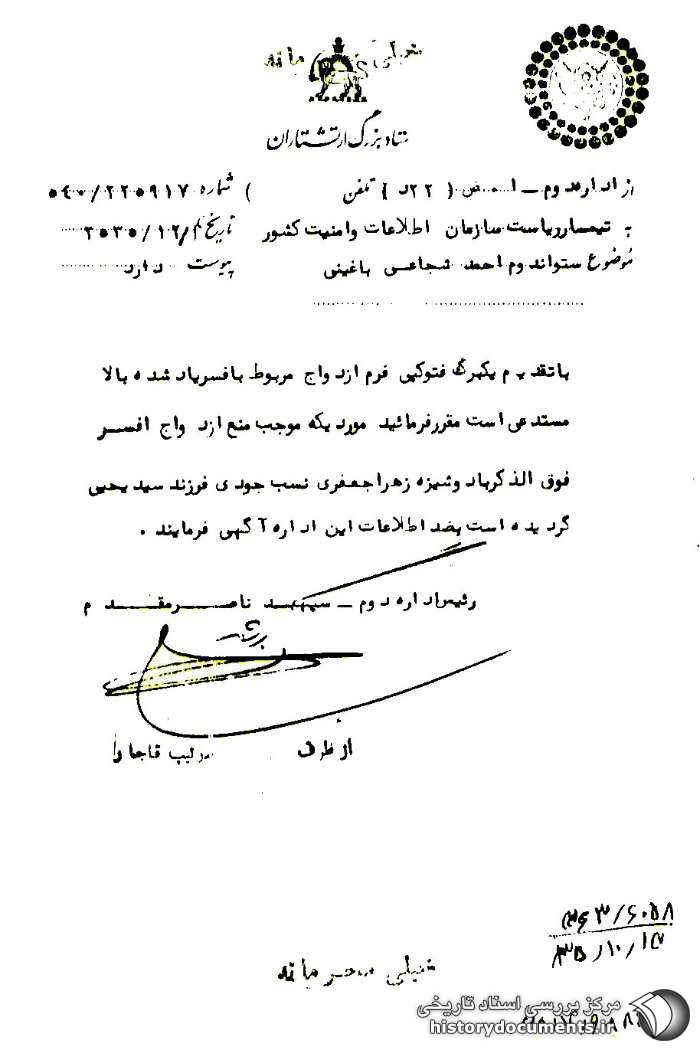 خیلی محرمانه
ستاد بزرگ ارتشتاران
از اداره دوم ـ ( ۲۲د ) تلفن ( شماره ۵۴۰/۲۲۵۹۱۷
به تیمسار ریاست سازمان اطلاعات وامنیت کشور تاریخ ۲۵۳۵/۱۲/
موضوع ستواندوم احمد شجاعی باغینی پیوست دارد
باتقدیم یکبرگ فتوکپی فرم ازدواج مربوط بافسریاد شده بالا
مستدعی است مقررفرمائید موردیکه موجب منع ازدواج افسر
فوق الذکرباد وشیزه زهراجعفری نسب جودی فرزند سیدیحیی
گردیده است بضد اطلاعات این اداره آگهی فرمایند .
رئیس اداره دوم ـ سپهبد ناصر مقدم
از طرف سرتیپ قاجار
خیلی محرمانه
مرکز بررسی اسناد تاریخی
historydocuments.ir